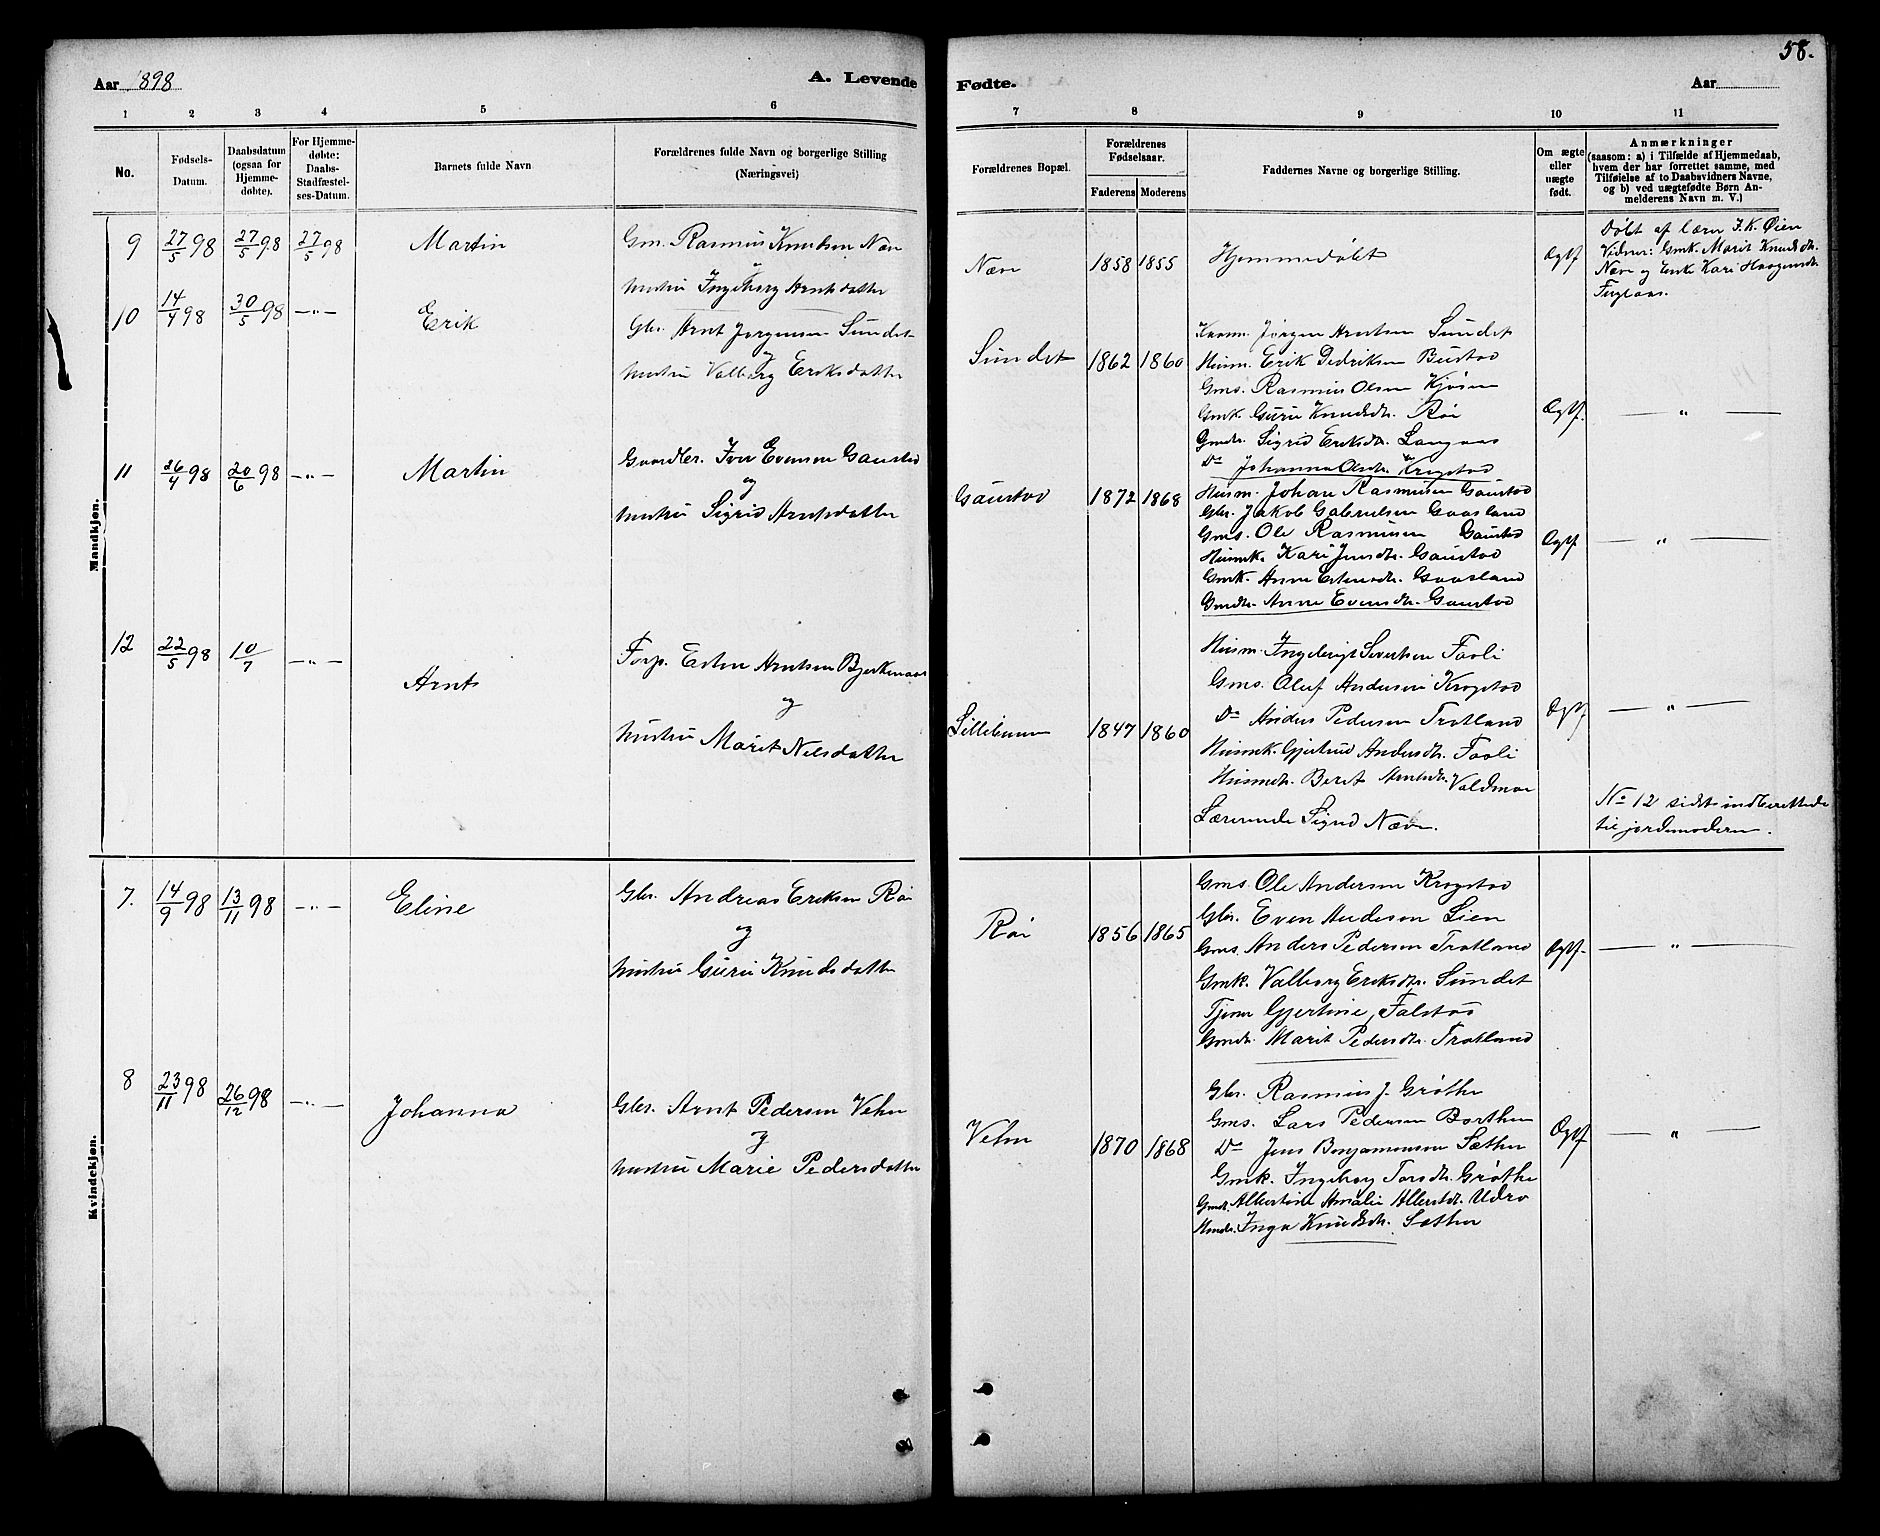 58.
Aar 1898 A. Levende Fødte. Aar
1 2 3 4 5 6 7 8 9 10 11
No.
Fødsels-Datum.
Daabsdatum (ogsaa for Hjemmedøbte).
For Hjemmedøbte: Daabs-Stadfæstelses-Datum.
Barnets fulde Navn
Forældrenes fulde Navn og borgerlige Stilling (Næringsvei)
Forældrenes Bopæl.
Forældrenes Fødselsaar.
Faderens Moderens
Faddernes Navne og borgerlige Stilling.
Om ægte eller uægte født.
Anmærkninger (saasom: a) i Tilfælde af Hjemmedaab, hvem der har forrettet samme, med Tilføielse af to Daabsvidners Navne, og b) ved uægtefødte Børn Anmelderens Navn m. V.)
Mandkjøn.
9 27/5 98 27/5 98 27/5 98 Martin
Gm. Rasmus Knudsen Næv
og
hustru Ingeborg Arntsdatter
Næve 1858 1855 Hjemmedøbt Ægtf
Døbt af lærer I. K. Øien
Vidner: Gmk. Marit Knudsdtr.
Næve og Enk. Kari Haagensdtr.
Fuglaas.
10 14/4 98 30/5 98 —„— Erik
Gbr. Arnt Jørgensen Sundet
og
hustru Valborg Eriksdatter
Sundet 1862 1860
Kaarm. Jørgen Arntsen Sundet
Husm. Erik Pedriksen Bustad
Gms. Rasmus Olsen Kjøsen
Gmk. Guru Knudsdtr. Røi
Gmdtr. Sigrid Eriksdtr. Langaas
Do Johanna Olsdtr. Krogstad
Ægtf. — „ —
11 26/4 98 20/6 98 —„— Martin
Gaardbr. Iver Evensen Gaustad
og
hustru Sigrid Arntsdatter
Gaustad 1872 1868
Husm. Johan Rasmusen Gaustad
Gbr. Jakob Gabrielsen Gaasland
Gms. Ole Rasmusen Gaustad
Husmk. Kari Jensdtr. Gaustad
Gmk. Anne Estensdtr. Gaasland
Gmdtr. Anne Evensdtr. Gaustad
Ægtf. — „ —
12 22/5 98 10/7 —„— Arnt
Forp. Esten Arntsen Bjerkenaas
og
hustru Marit Nilsdatter
Lillebuan 1847 1860
Husm. Ingebrigt Sivertsen Fooli
Gms. Oluf Andersen Krogstad
Do Anders Pedersen Trotland
Husmk. Gjertrud Andersdtr. Fooli
Husmdtr. Beret Arntsdtr. Valdmoe
Lærerinde Sigrid Næve.
Ægtf — „ —
No 12 sidst indberettede
til jordemoderen.
Kvindekjøn.
7. 14/9 98 13/11 98 —„— Eline
Gbr. Andreas Eriksen Røi
og
hustru Guru Knudsdatter
Røi 1856 1865
Gms. Ole Andersen Krogstad
Gbr. Even Andersen Lien
Gms. Anders Pedersen Trotland
Gmk. Valborg Eriksdtr. Sundet
Tjener Gjertine, Falstad
Gmdtr. Marit Pedersdtr. Trotland
Ægtf. — „ —
8 23/11 98 26/12 98 —„— Johanna
Gbr. Arnt Pedersen Vehn
og
hustru Marie Pedersdatter
Vehn 1870 1868
Gbr. Rasmus J. Grøthe
Gms. Lars Pedersen Borthen
Do Jens Benjamensen Sæther
Gmk. Ingeborg Torsdtr. Grøthe
Gmdt. Albertine Amalie Albertsdt. Udro
Hmdtr. Inga Knudsdtr. Sæther
Ægtf — „ —